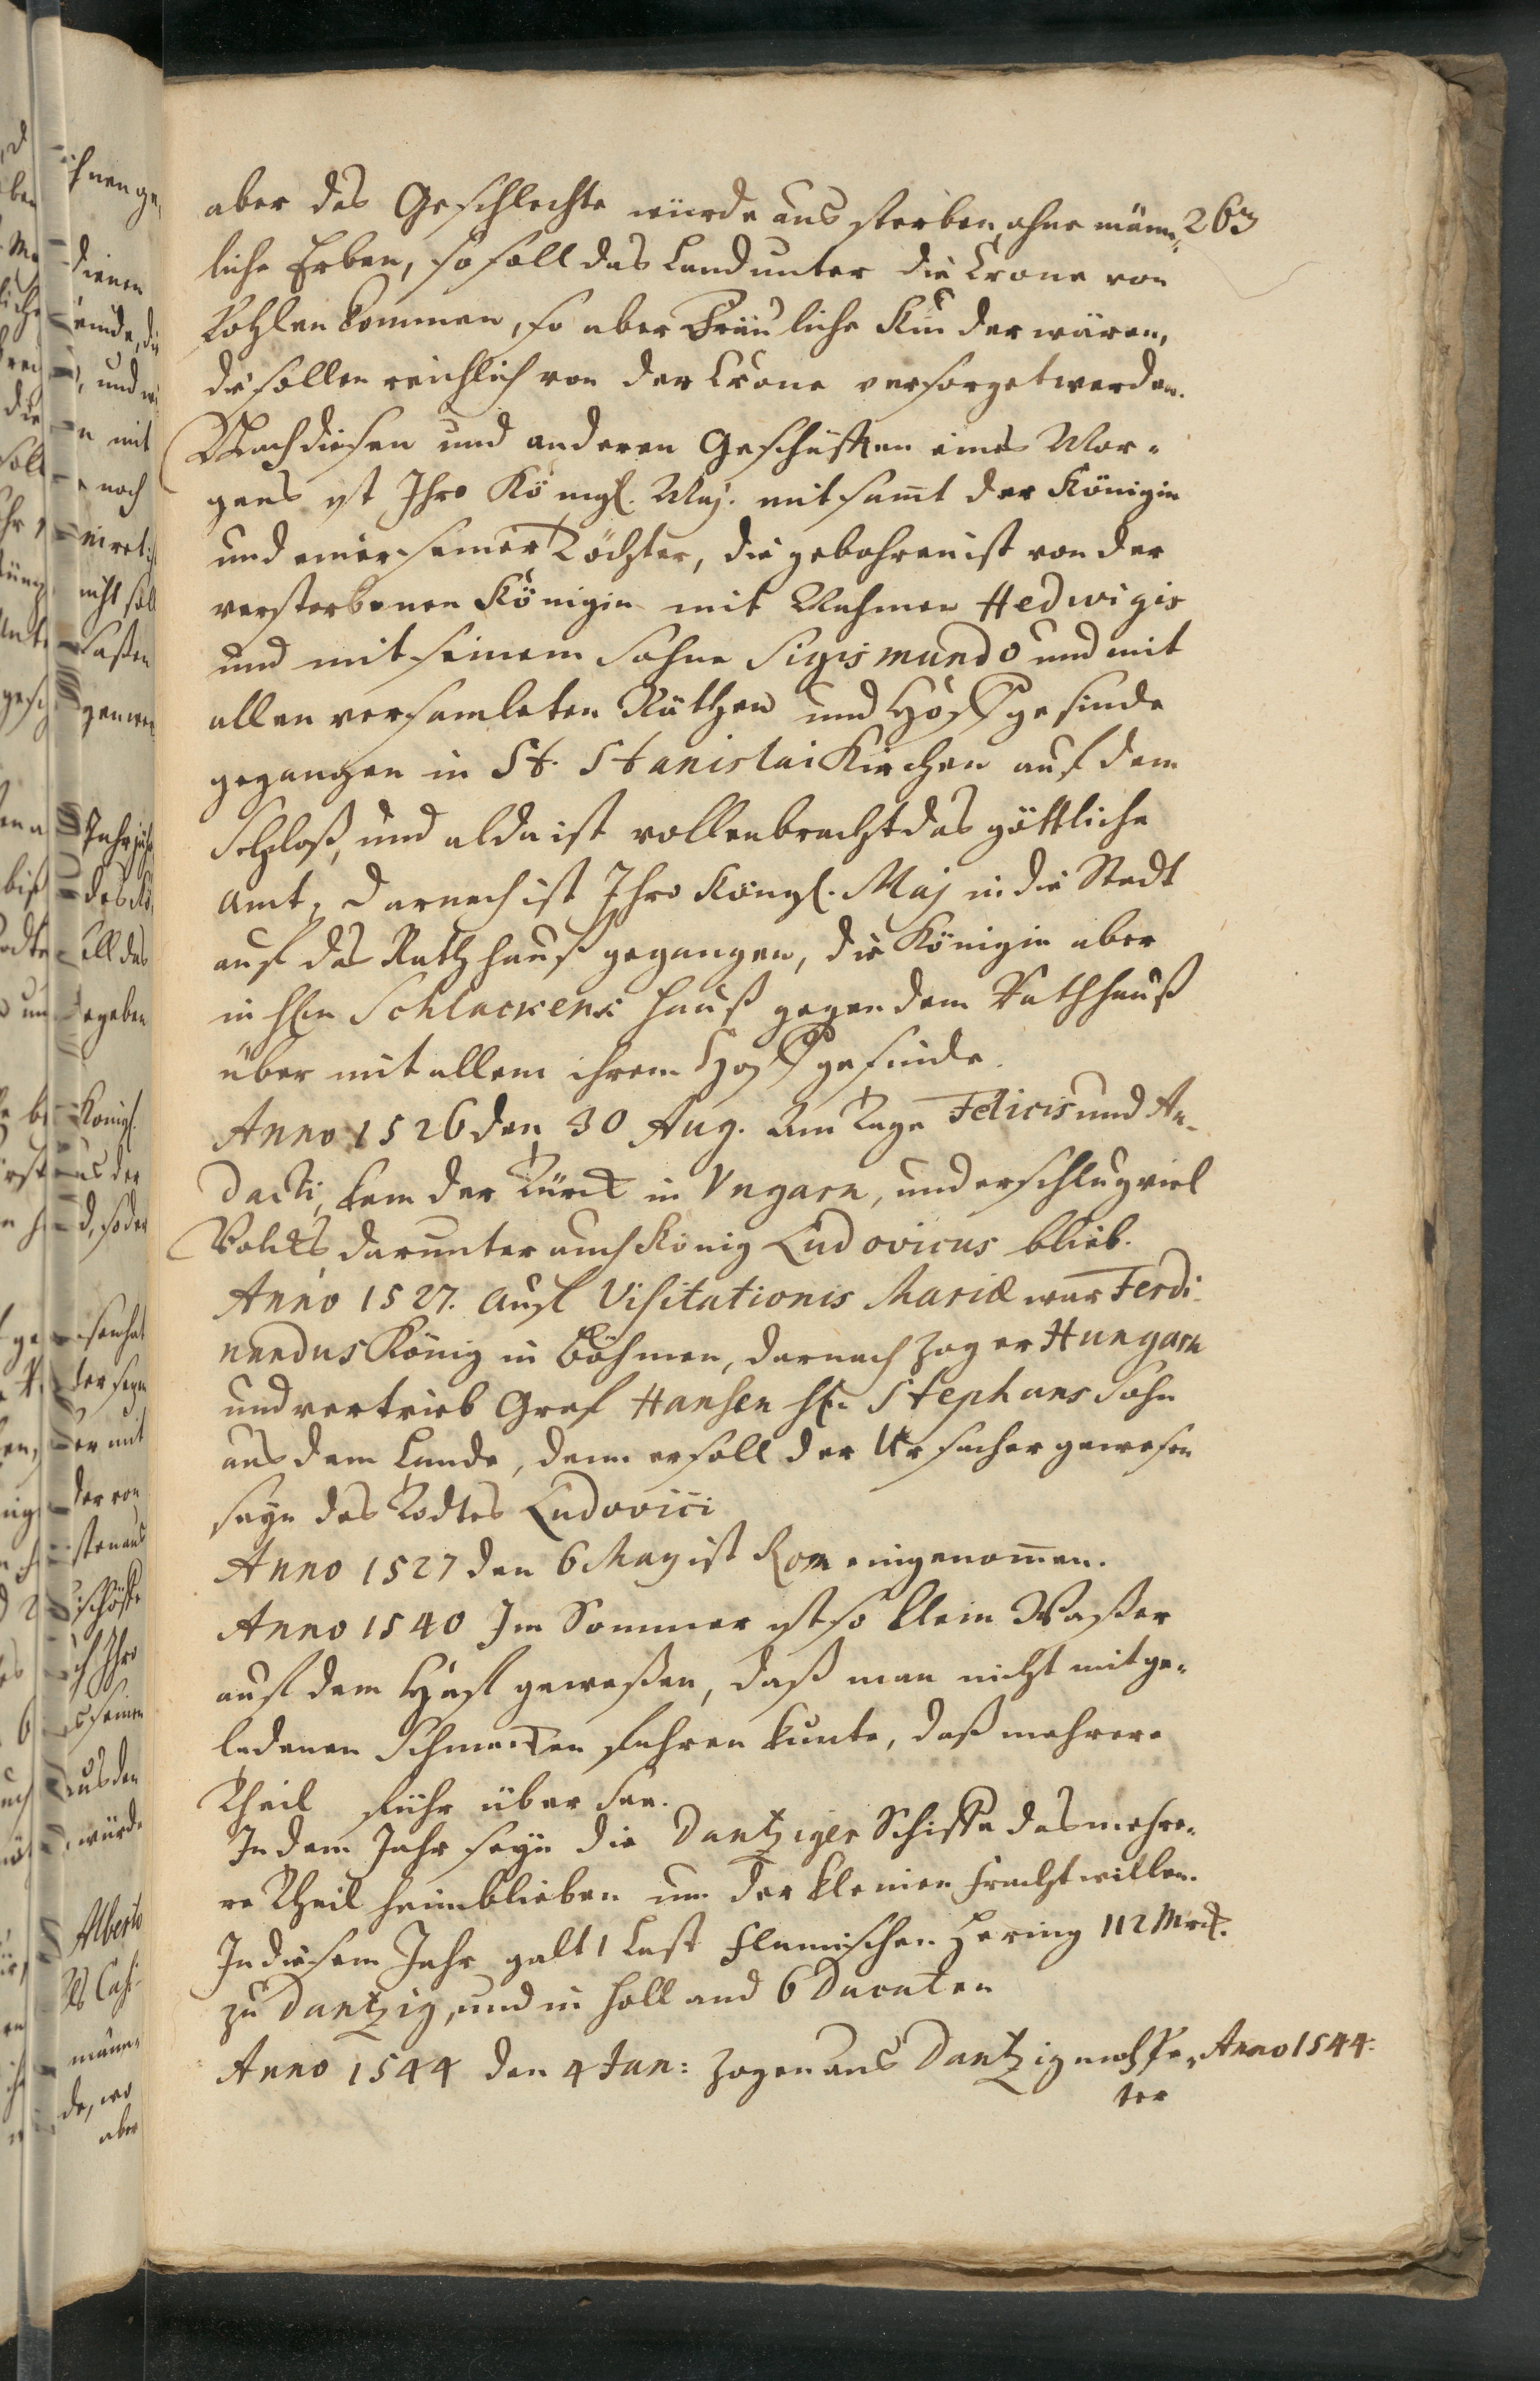 263
aber das Geschlechte würde aus sterben, ohne männ-
liche Erben, so soll das Land unter die Crone von
Pohlen kommen, so aber Fräuliche Kinder wären,
die sollen reichlich von der Crone versorget werden.
Nach diesen und anderen Geschäften eines Mor-
gens ist Ihro Königl. Maj. mit samt der Königin
und einer seiner Töchter, die gebohren ist von der
verstorbenen Königin mit Nahmen Hedwigis
und mit seinem Sohne Sigismundo und mit
allen versamleten Räthen und Hoffgesinde
gegangen in St. Stanislai Kirchen auf dem
Schloß, und alda ist vollenbracht das göttliche
Amt, darnach ist Ihro Königl. Maj in die Stadt
auf das Rathhauß gegangen, die Königin aber
in Hln Schlackens Hauß gegen dem Rathhauß
über mit allem ihrem Hoffgesinde.
Anno 1526 den 30 Aug. am Tage Felicis und Au-
dacti, kam der Türck in Vngarn, und erschlug viel
Volcks, darunter auch König Ludovicus blieb.
Anno 1527. Auf Visitationis Mariæ war Ferdi-
nandus König in Böhmen, darnach zog er Hungarn
und vertrieb Graf Hansen H. Stephans Sohn
aus dem Lande, denn er soll der Ursacher gewesen
seyn des Todtes Ludovici
Anno 1527 den 6 May ist Rom eingenomen.
Anno 1540 Im Sommer ist so klein Waßer
auf dem Haf geweßen, daß man nicht mit ge-
ladenen Schmacken fahren kunte, daß mehrere
Theil führ über See.
In dem Jahr seyn die Dantziger Schiffe das mehre-
re Theil heimblieben um der kleinen Fracht willen.
In diesem Jahr galt 1 Last Flamischen Hering 112 Mrck.
zu Dantzig, und in Holland 6 Ducaten
Anno 1544 den 4 Jan: zogen aus Dantzig Anno 1544:
ter